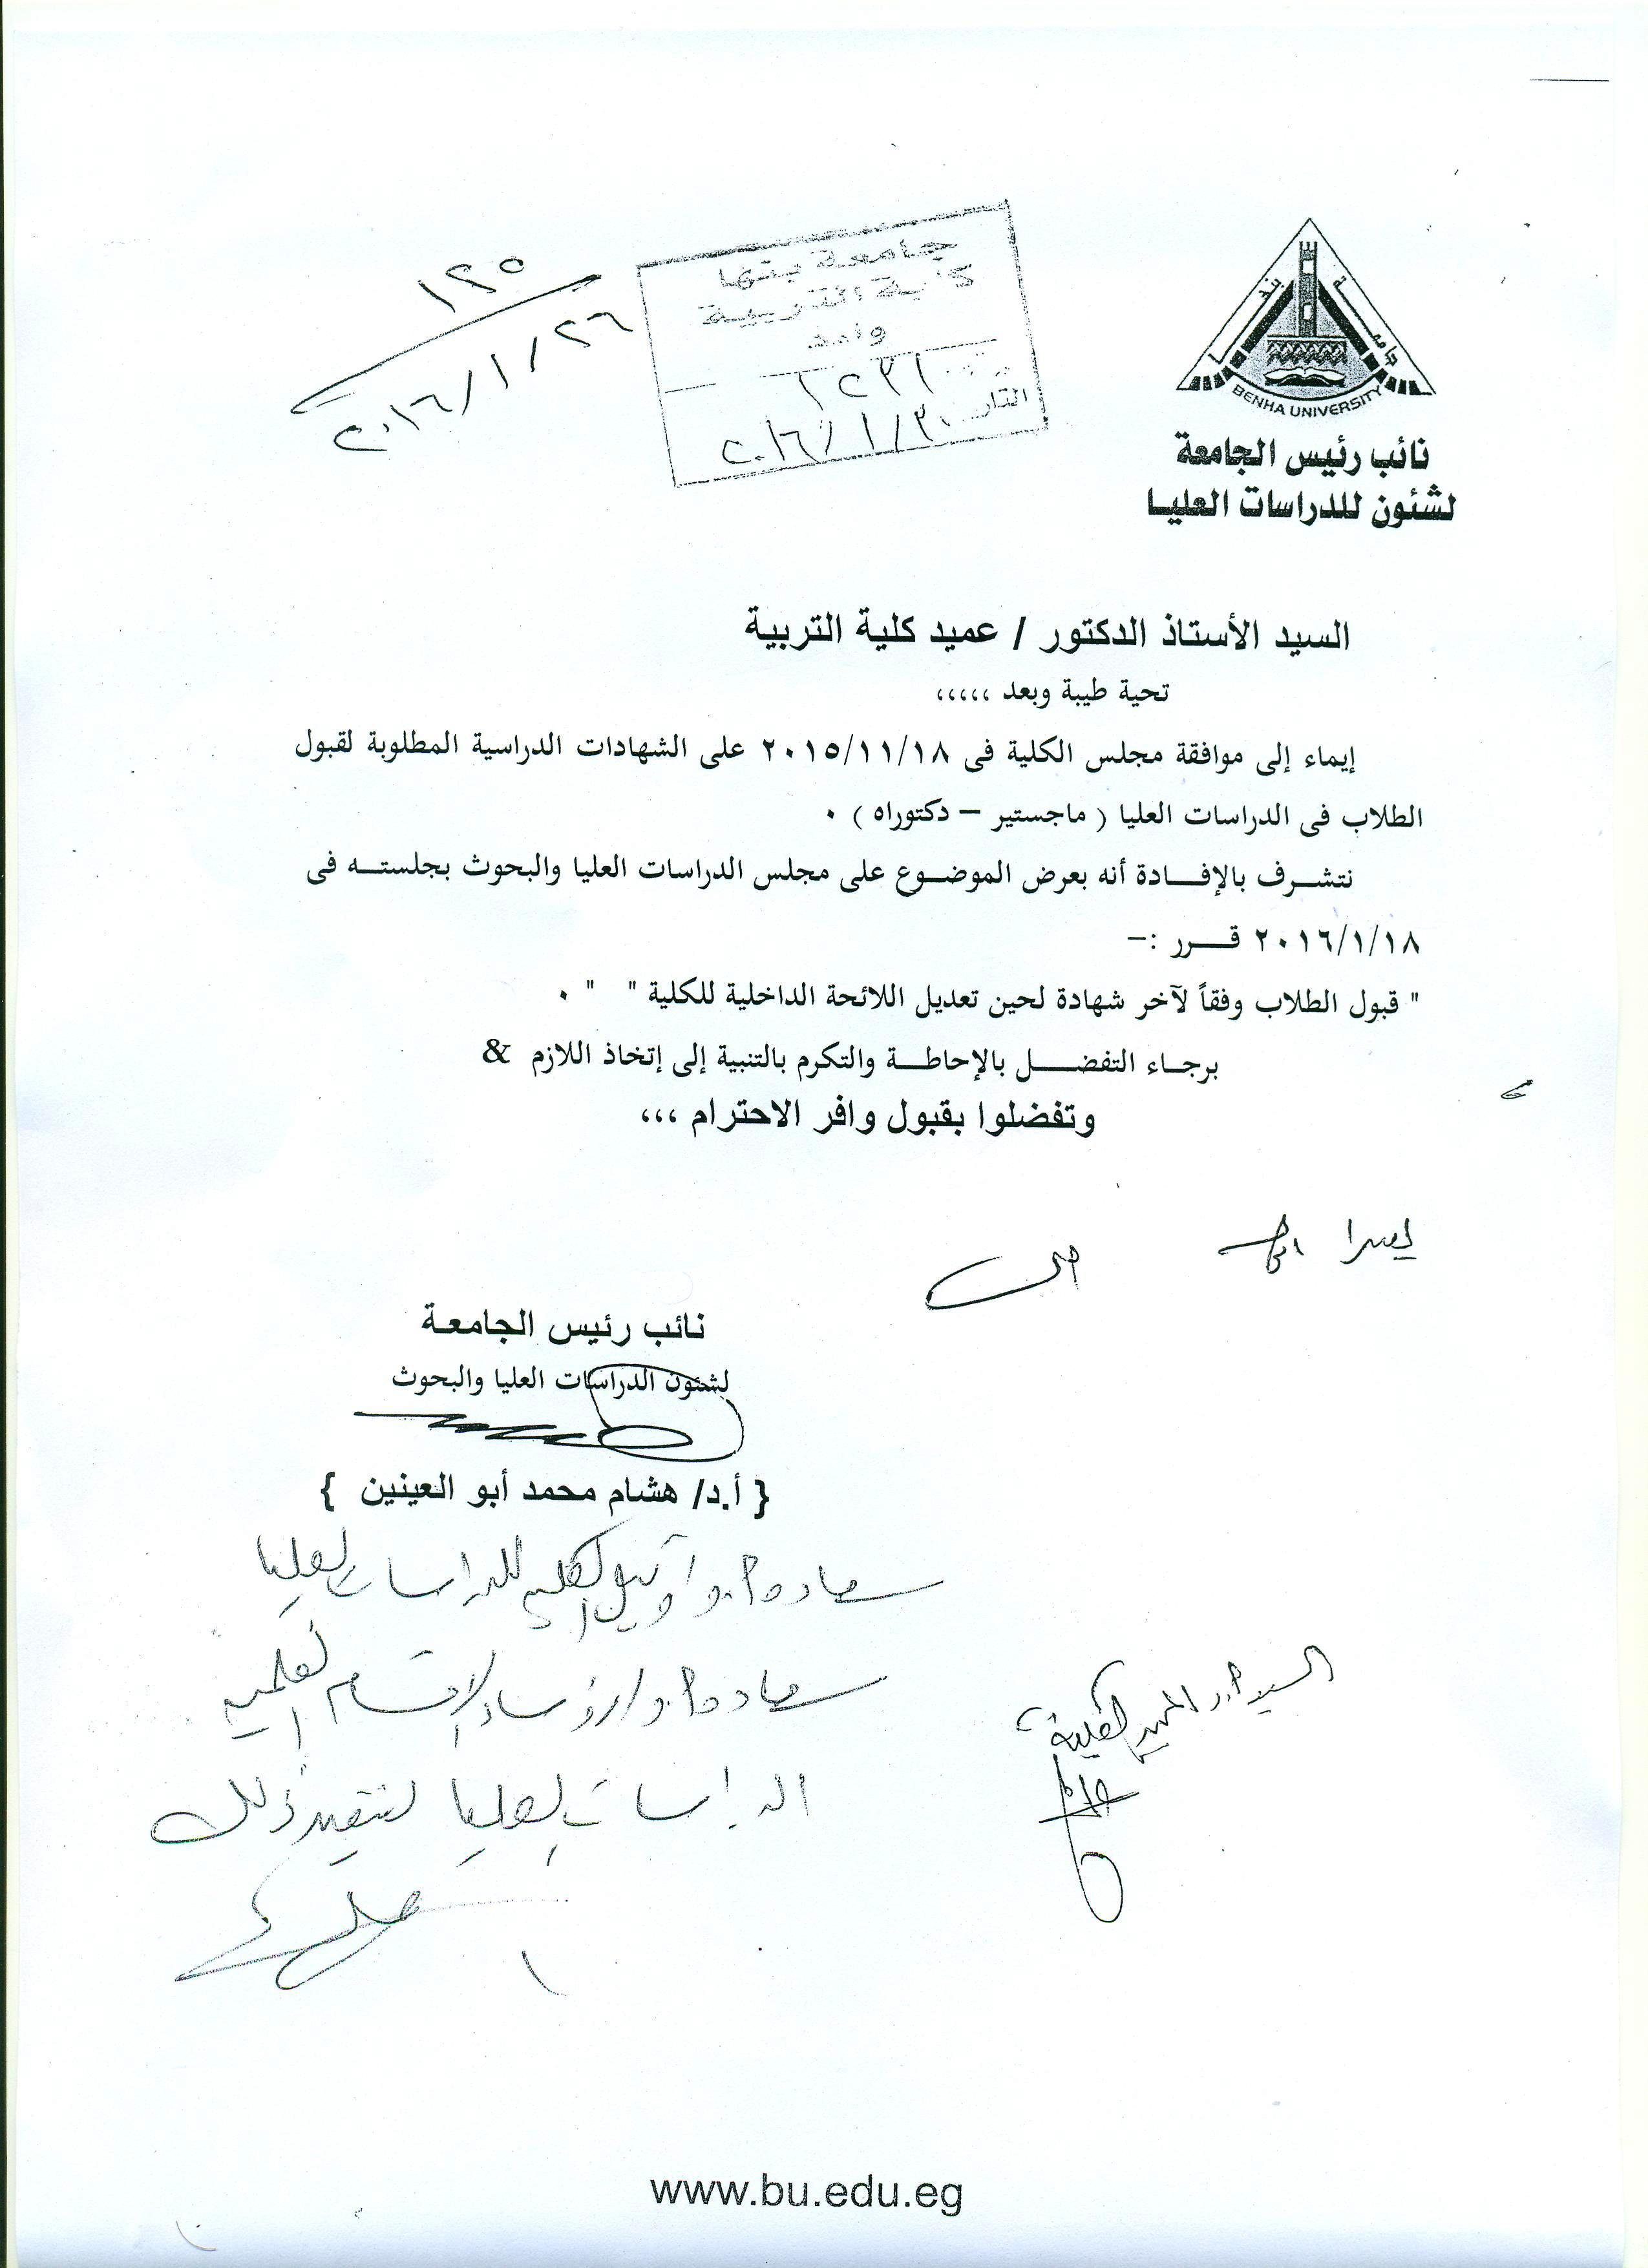 ١٢٥
٢٠١٦/١/٢٦
جامعة بنها
كلية التربية
وارد
١٢٣١
التاريخ ٢٠١٦/١/٣٠
جامعة بنها
BENHA UNIVERSITY
نائب رئيس الجامعة
لشئون للدراسات العليا
السيد الأستاذ الدكتور / عميد كلية التربية
تحية طيبة وبعد ،،،،،
إيماء إلى موافقة مجلس الكلية فى ٢٠١٥/١١/١٨ على الشهادات الدراسية المطلوبة لقبول
الطلاب فى الدراسات العليا ( ماجستير – دكتوراه ) ٠
نتشرف بالإفادة أنه بعرض الموضوع على مجلس الدراسات العليا والبحوث بجلسته فى
٢٠١٦/١/١٨ قرر :–
" قبول الطلاب وفقاً لآخر شهادة لحين تعديل اللائحة الداخلية للكلية " " ٠
برجاء التفضل بالإحاطة والتكرم بالتنبية إلى إتخاذ اللازم &
وتفضلوا بقبول وافر الاحترام ،،،
نائب رئيس الجامعة
لشئون الدراسات العليا والبحوث
{ أ.د/ هشام محمد أبو العينين }
سعادة أ.د/ وكيل الكلية للدراسات العليا
سعادة أ.د/ رؤساء الأقسام العلمية
الدراسات العليا لتنفيذ ذلك
السيد أ.د/ عميد الكلية
www.bu.edu.eg